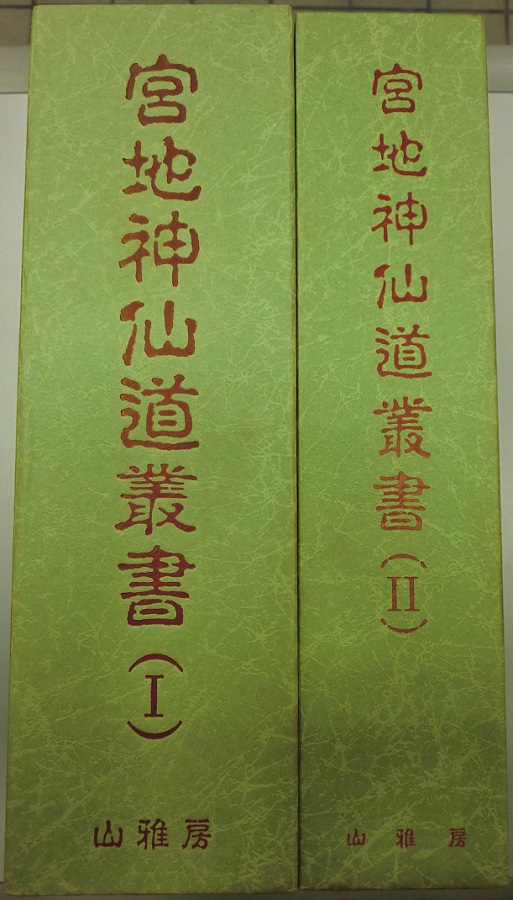 宮地神仙道叢書(I)
山雅房
宮地神仙道叢書(II)
山雅房